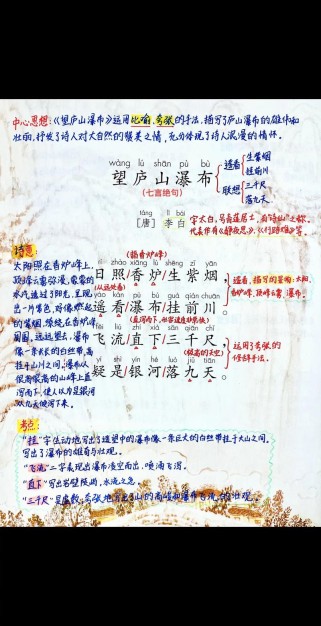 中心思想:《望庐山瀑布》运用比喻、夸张的手法,描写了庐山瀑布的雄伟和
壮丽,抒发了诗人对大自然的赞美之情,充分体现了诗人浪漫的情怀。
wàng lú shān pù bù
望庐山瀑布
(七言绝句)
遥看
生紫烟
挂前川
联想
三千尺
落九天
táng lǐ bái
[唐] 李白
字太白,号青莲居士,有"诗仙"之称,
代表作有《静夜思》、《行路难》等。
诗意:
太阳照在香炉峰上,
水汽透过了阳光,呈现
出一片紫色,好像燃起
的紫烟,缭绕在香炉峰
周围,远远望去,瀑布
像一条长长的白丝带,高
挂于山川之间;瀑布从
很高很高的山峰上直
泻而下,使人以为是银河
从九天倾泻下来。
(指香炉峰)
rì zhào xiāng lú shēng zǐ yān
日照/香炉/生紫烟,
(从远处看)
yáo kàn pù bù guà qián chuān
遥看/瀑布/挂前川。
遥看,描写的景物:太阳、
香炉峰、瀑布。
fēi liú zhí xià sān qiān chǐ
飞流/直下/三千尺,
(极高的天空)
yí shì yín hé luò jiǔ tiān
疑是/银河/落九天。
运用了夸张的
修辞手法。
考点:
"挂"字生动地写出了遥望中的瀑布像一条巨大的白丝带挂于大山之间,
写出了瀑布的雄奇与壮观。
"飞流"二字表现出瀑布凌空而出,喷涌飞泻。
"直下"写出岩壁陡峭,水流之急。
"三千尺"是虚数,夸张地写出了山的高峻和瀑布飞流的壮观。